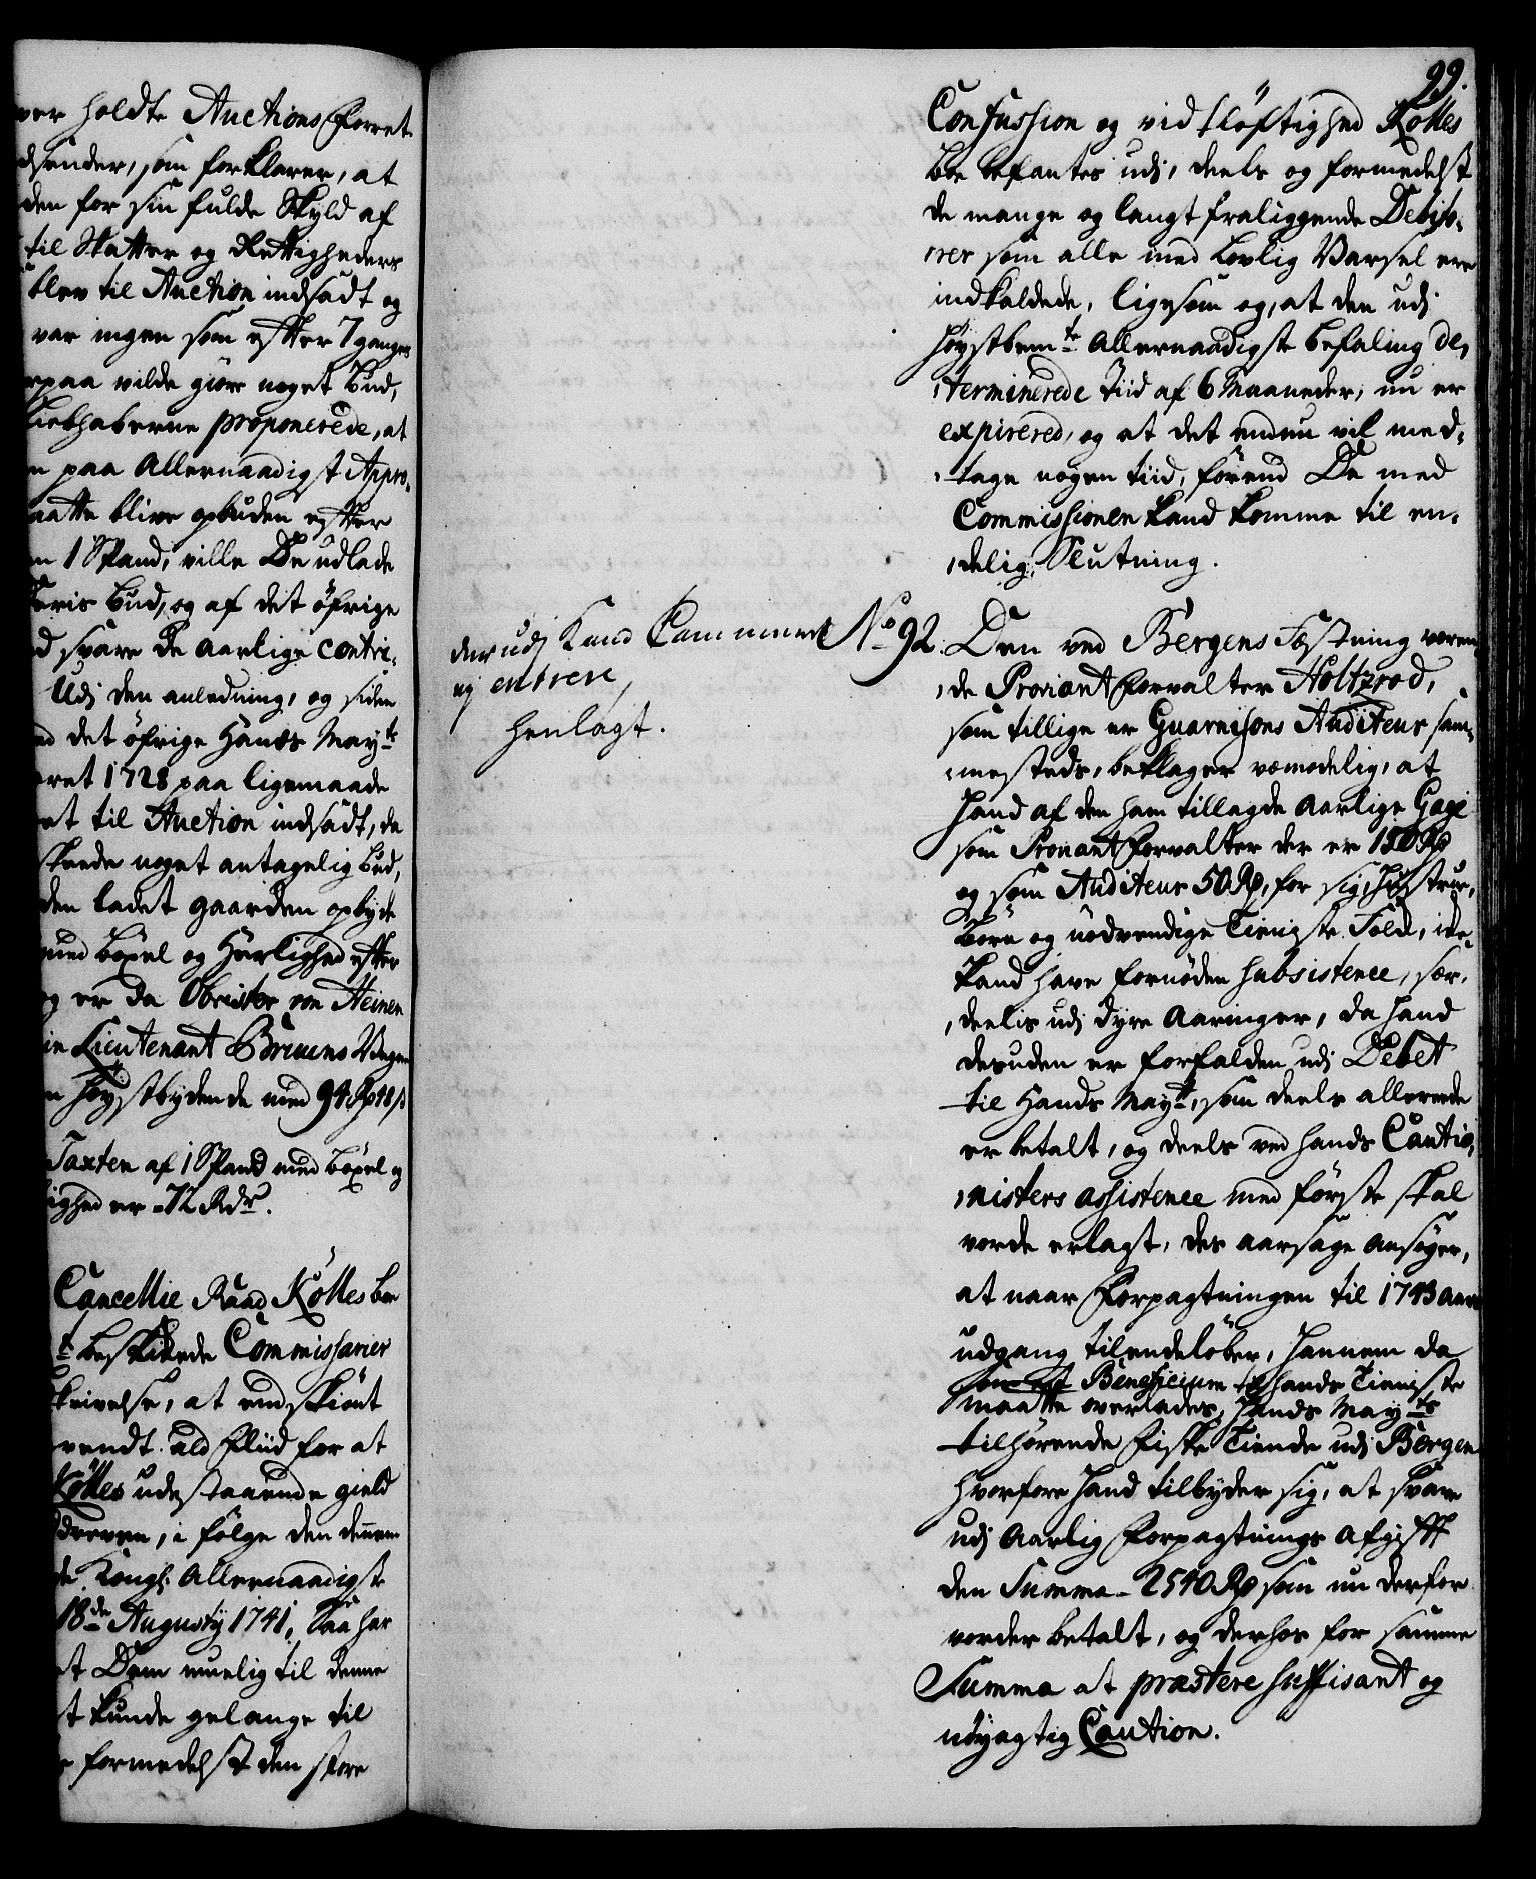 ver holdte Auctions Forret
dsender, som forklarer, at
den for sin fulde Skyld af
til Skatter og Rettigheders
blev til Auction indsadt og
var ingen som efter 7 ganges
rpaa vilde giøre noget Bud,
Liebhaberne proponerede, at
n paa Allernaadigst Appro-
aatte blive opbuden efter
n 1 Spand, ville De udlade
Bud, og af det öfrige
d svare De Aarlige contri-
Udi den anledning, og siden
ed det öfrige Hands Mayts
aret 1728 paa ligemaade
et til Auction indsadt, da
skeede noget antagelig Bud,
den ladet gaarden opbyde
med Böxel og Herlighed efter
og er da Obrister von Heinen
in Lieutenant Bruuns
n Höystbydende med 94 Rd 48 s
Taxten af 1 Spand med Böxel og
lighed er - 72 Rdr.
Cancellie Raad Kölles boe
t beskikede Commissarier
skrivelse, at endskiönt
vendt ald Fliid for at
Kölles udestaaende gield
ddreven, i fölge den dennem
de Kongl. Allernaadigste
18de Augusty 1741, Saa har
et Dem muelig til denne
t kunde gelange til
formedelst den store
99.
Confussion og vidtlöftighed Kölles
boe befantes udi, deels og formedelst
de mange og langt fraliggende Debito-
rer som alle med Lovlig Varsel ere
indkaldede, ligesom og, at den udi
höystbemte Allernaadigste befaling de-
terminerede Tiid af 6 Maaneder, nu er
expirered, og at det endnu vil med-
tage nogen tiid, förend De med
Commissionen kand komme til en-
delig Slutning.
derudi Kand Cammeret
ej entrere,
henlagt.
No 92. Den ved Bergens Fæstning væren-
de Proviant Forvalter Holtzrod,
som tillige er Guarnisons Auditeur sam-
mesteds, beklager vemodelig, at
Hand af den ham tillagde Aarlige Gage
som Proviant Forvalter der er 150 Rd
og som Auditeur 50 Rd, for sig, Hustrue,
Börn og nödvendige Tieniste Folk, icke
kand have fornöden subsistence, sær-
deelis udi dyre Aaringer, da Hand
desuden er forfalden udi Debet
til Hands Mayts, som deels allereede
er betalt, og deels ved hands Cautio-
nisters assistence med förste skal
vorde erlagt, des aarsage ansöger,
at naar Forpagtningen til 1743 Aars
udgang tilendelöber, Hannem da
som et Beneficium hands Tieniste
maatte overlades, Hands Mayts
tilhörende Fiske Tiende udi Bergen
Hvorfore Hand tilbyder sig, at svare
udi Aarlig Forpagtnings Afgifft
den Summa - 2540 Rd som nu derfor
vorder betalt, og derhos for samme
Summa at præstere suffisant og
nöyagtig Caution.